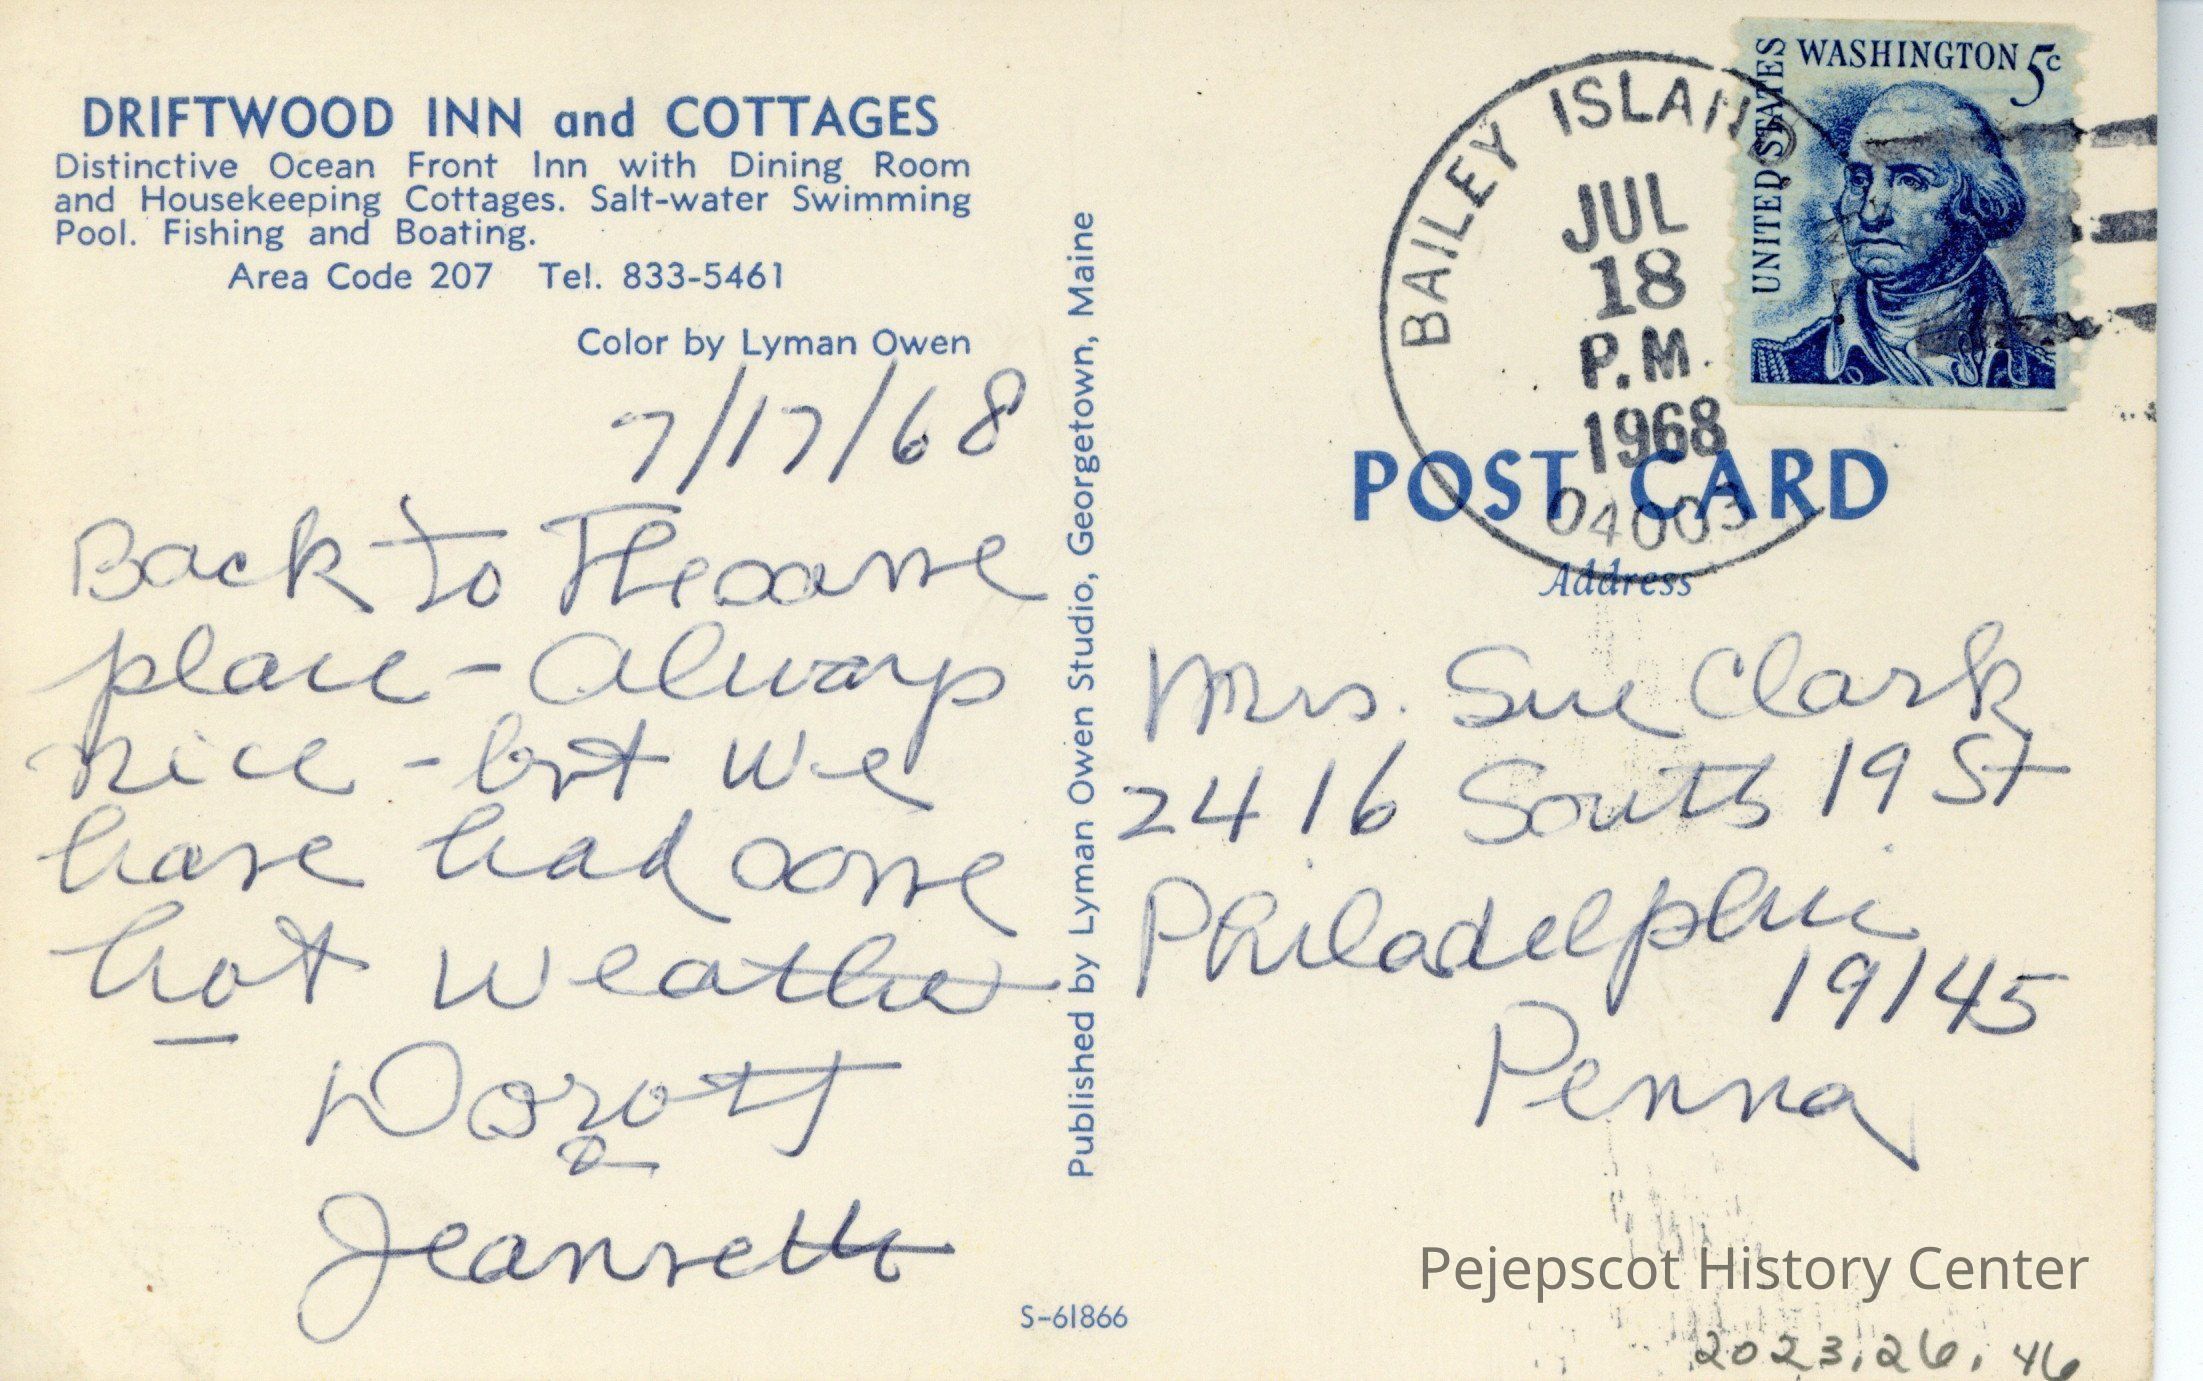 DRIFTWOOD INN and COTTAGES
Distinctive Ocean Front Inn with Dining Room
and Housekeeping Cottages. Salt-water Swimming
Pool. Fishing and Boating.
Area Code 207 Tel. 833-5461
Color by Lyman Owen
7/17/68
Back to The same
place - Always
nice - but we
have had some
hot weather
Dorott
&
Jeannette
Published by Lyman Owen Studio, Georgetown, Maine
S-61866
BAILEY ISLAND
JUL
18
P.M.
1968
04003
UNITED STATES
WASHINGTON 5c
POST CARD
Address
Mrs. Sue Clark
2416 South 19 St
Philadelphia
19145
Penna
Pejepscot History Center
2023.26.46